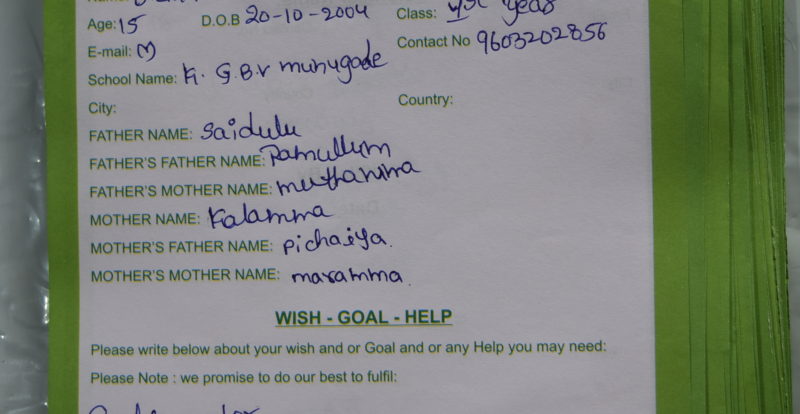 Age: 15 D.O.B 20-10-2004 Class: 1st year
E-mail: M Contact No 9603202856
School Name: K. G.B.V munugode
City: Country:
FATHER NAME: Saidulu
FATHER'S FATHER NAME: Ramullum
FATHER'S MOTHER NAME: muthamma
MOTHER NAME: Kalamma
MOTHER'S FATHER NAME: pichaiya.
MOTHER'S MOTHER NAME: maramma.
WISH - GOAL - HELP
Please write below about your wish and or Goal and or any Help you may need:
Please Note : we promise to do our best to fulfil: